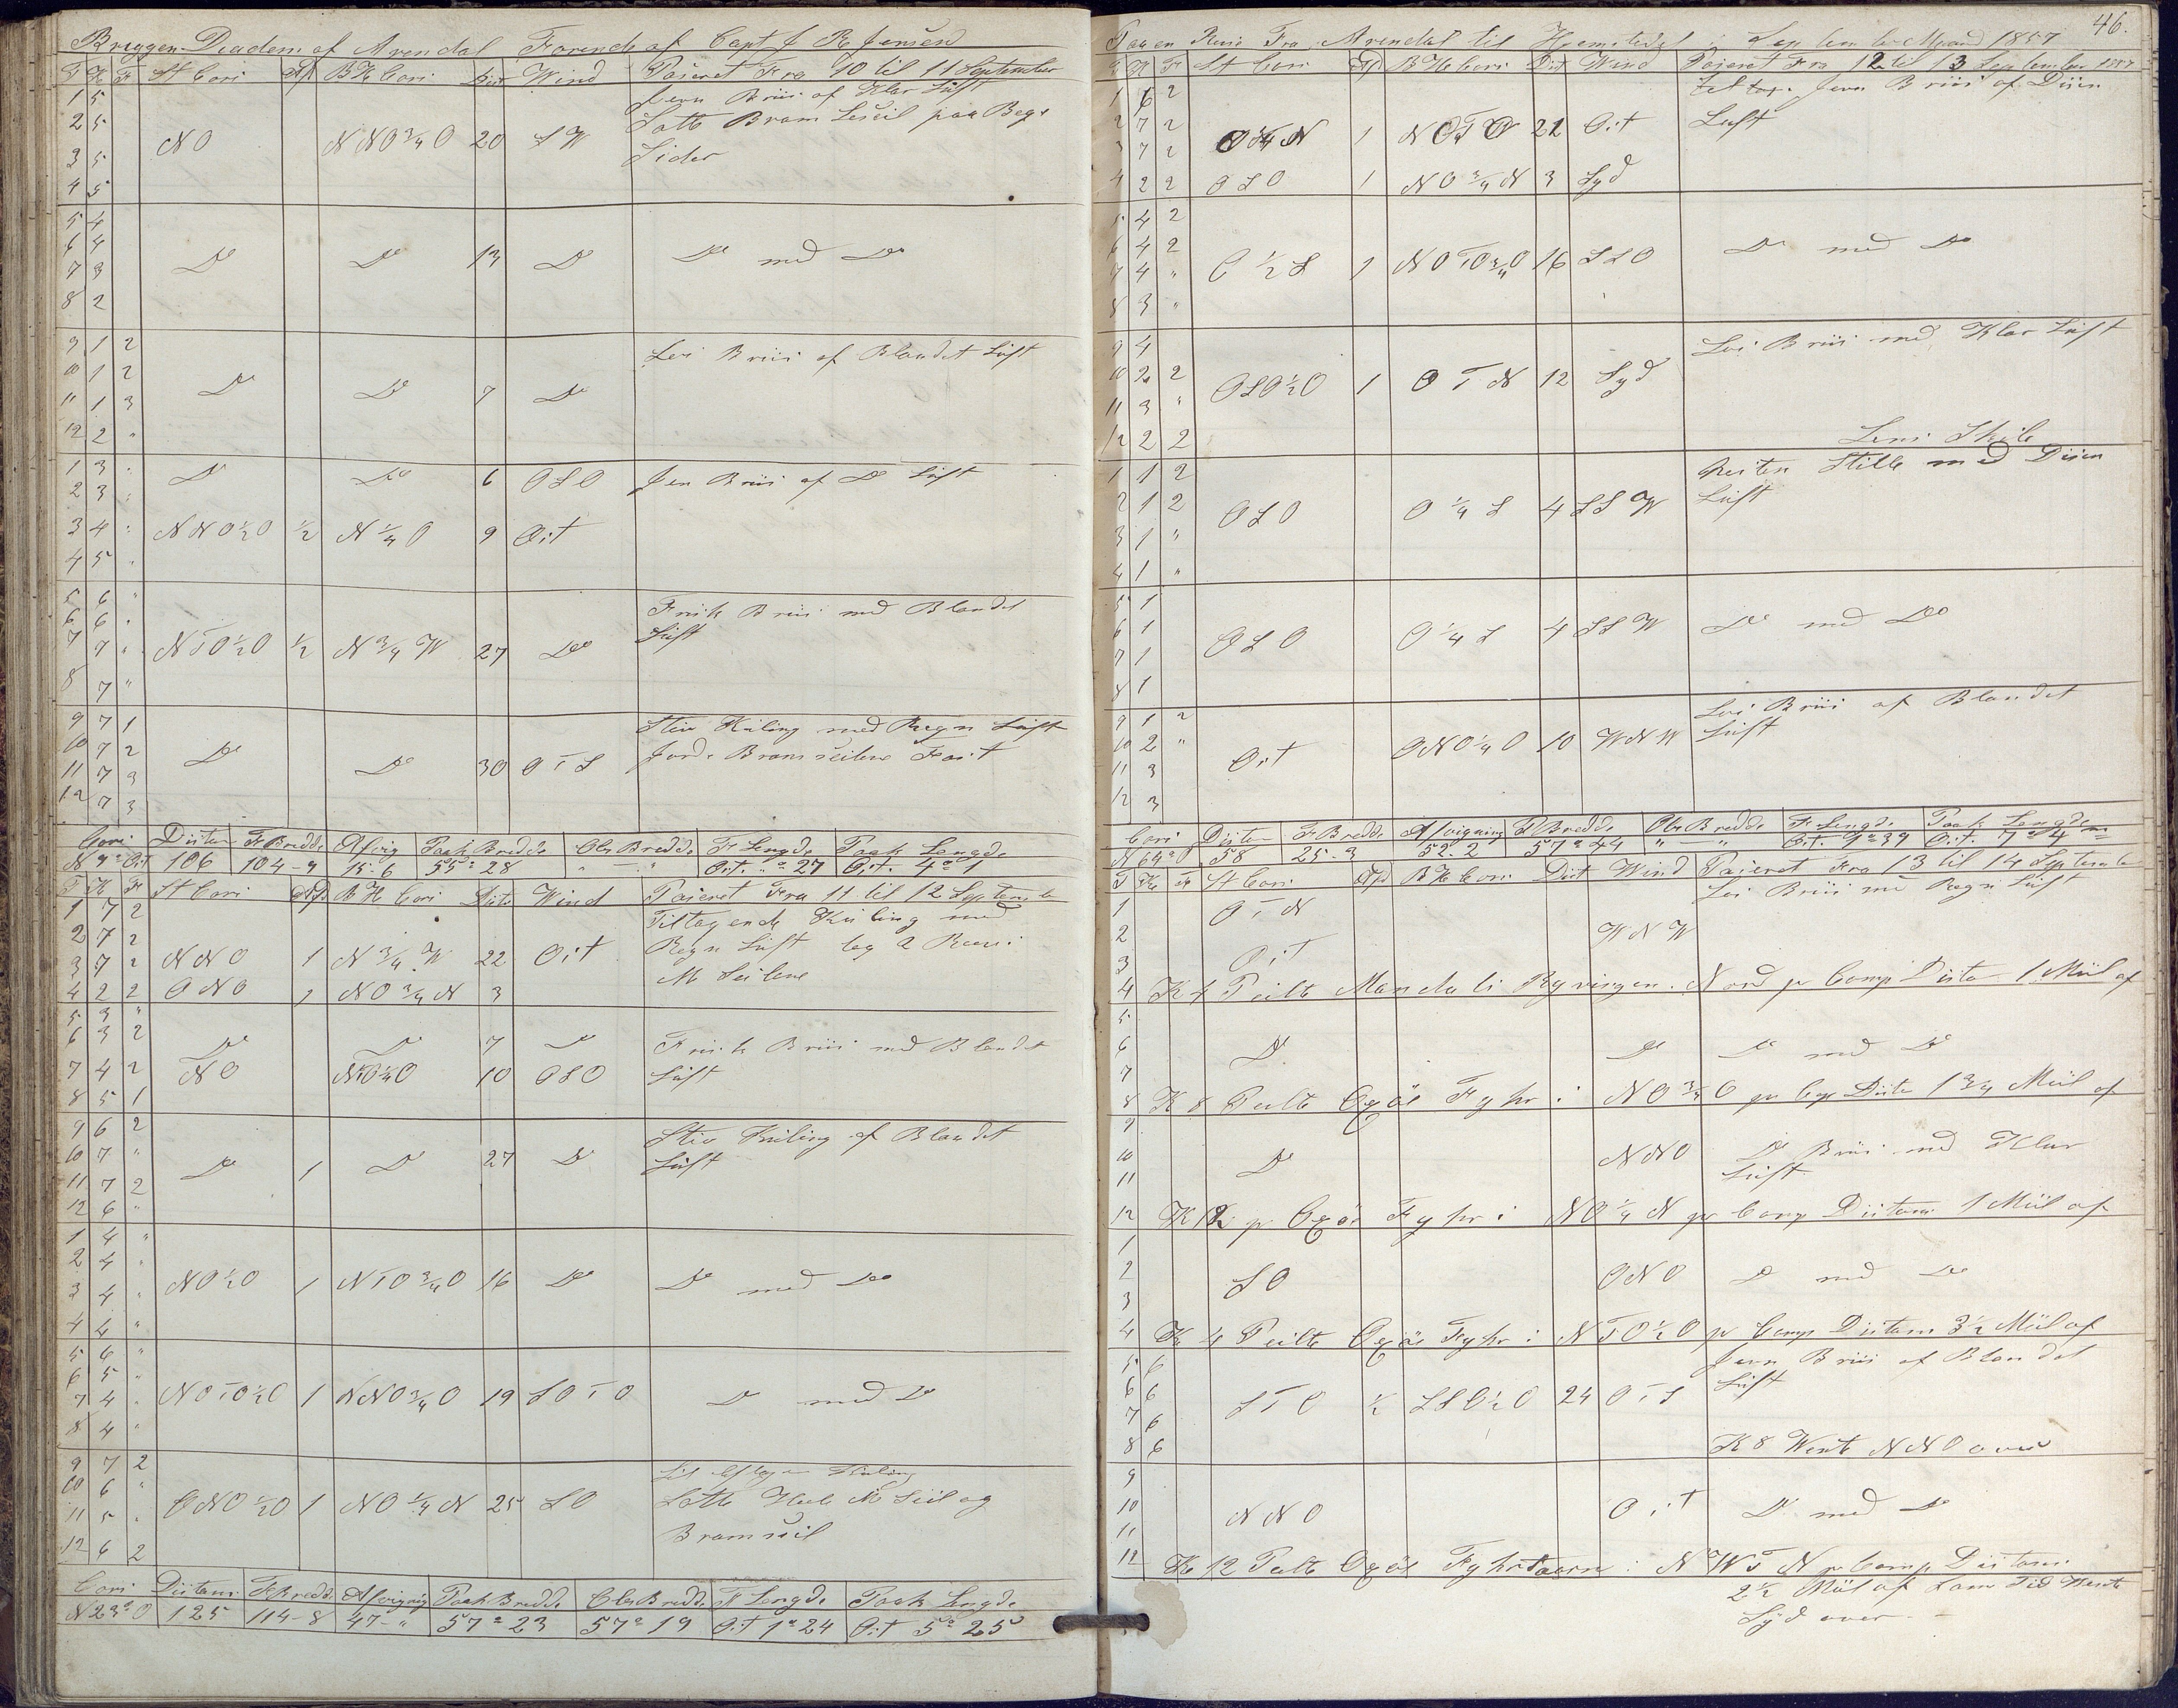 Briggen Diadem af Arendal Førende af Capt J R Jensen
T K F St Cors Afd BH Cors Dist Wind Passeret Fra 10 til 11 September
1 5 Jevn Briis af Klar Luft
2 5 NO N NO 3/4 O 20 S W Satte Bram Leseil paa Beg.
3 5 Sider
4 5
5 4
6 4 Do Do 13 Do Do med Do
7 3
8 2
9 1 2 Lei Briis af Blandet Luft
10 1 2 Do Do 7 Do
11 1 3
12 2 "
1 3 " Do Do 6 OSO Jen Briis af Do Luft
2 3 "
3 4 " NNO 1/2 O 1/2 N 1/4 O 9 Ost
4 5 "
5 6 " Frisk Briis med Blandet
6 6 " Luft
7 7 " NTO 1/2 O 1/2 N 3/4 W 27 Do
8 7 "
9 7 1 Stiv Kuling med Regn Luft
10 7 2 Do Do 30 OTS Jord. Bramseilene Fast
11 7 3
12 7 3
Cors Distan F Bredde Afvig Paak Bredde Obs Bredde F Lengde Paak Lengde
N 9° Ost 106 104-9 15.6 55° 28 " — " Ost. "° 27 Ost. 4° 1
T K F St Cors Afd BH Cors Dist Wind Passeret Fra 11 til 12 September
1 7 2 Tiltagende Kuling med
2 7 2 Regn Luft tog 2 Reev i
3 7 2 NNO 1 N 3/4 W 22 Ost M Seilene
4 2 2 ONO 1 NO 3/4 N 3
5 3 "
6 3 2 Do Do 7 Do Frisk Briis med Blandet
7 4 2 NO NTO 1/4 O 10 OSO Luft
8 5 1
9 6 2 Stiv Kuling af Blandet
10 7 " Do 1 Do 27 Do Luft
11 7 2
12 6 "
1 4 "
2 4 "
3 4 " NO 1/2 O 1 NTO 3/4 O 16 Do Do med Do
4 4 "
5 6 "
6 5 "
7 4 " NOTO 1/2 O 1 NNO 3/4 O 19 SOTO Do med Do
8 4 "
9 7 2 Kuling
10 6 " ONO 1/2 O 1 NO 1/4 N 25 SO Satte Hele M Seil og
11 5 " Bramseil
12 6 2
Cors Distans F Bredde Afvigning Paak Bredde Obs Bredde F Lengde Paak Lengde
N 23° O 125 114-8 47-" 57° 23 57° 19 Ost 1° 24 Ost 5° 25
46.
Paa en Reise Fra Arendal til i September Maaned 1857
T K F St Cors Afd BH Cors Dist Wind Passeret Fra 12 til 13 September 1857
1 6 2 Jevn Briis af Diisn
2 7 2 1 NOTO 21 Ost Luft
3 7 2
4 2 2 OSO 1 NO 3/4 N 3 Syd
5 4 2
6 4 2 O 1/2 S 1 NOTO 3/4 O 16 SSO Do med Do
7 4 "
8 3 "
9 4 Lei Briis med Klar Luft
10 2 2 OSO 1/2 O 1 OTN 12 Syd
11 3 "
12 2 2
1 1 2 Nesten Stille med Diisn
2 1 2 OSO O 1/4 S 4 SSW Luft
3 1 "
4 1 "
5 1
6 1 OSO O 1/4 S 4 SSW Do med Do
7 1
8 1
9 1 2 Lei Briis af Blandet
10 2 " Ost ONO 1/4 O 10 WNW Luft
11 3
12 3
Cors Distan F Bredde Afvigning P Bredde Obs Bredde F Lengde Paak Lengde
N 64° O 58 25.3 52.2 57° 44 " — " Ost. 1° 39 Ost. 7° 4
T K F St Cors Afd BH Cors Dist Wind Passeret Fra 13 til 14 September
1 OTN Lei Briis med Regn Luft
2 WNW
3 Ost
4 K 4 Peilte Mandals Ryvingen. Nord pr Comp Distan 1 Miil af
5
6 Do Do Do med Do
7
8 K 8 Peilte Oxøe Fyhr i NO 3/4 O pr Cop Distan 1 3/4 Miil af
9
10 Do NNO Do Briis med Klar
11 Luft
12 K 12 p Oxøe Fyhr i NO 1/4 N pr Comp Distans 1 Miil af
1
2 SO ONO Do med Do
3
4 K 4 Peilte Oxøe Fyhr i NTO 1/2 O pr Comp Distans 3 1/2 Miil af
5 6 Jevn Briis af Blandet
6 6 STO 1/2 SSO 1/2 O 24 OTS Luft
7 6
8 6 K 8 Wente NNO over
9
10 NNO Ost Do med Do
11
12 K 12 Peilte Oxøe Fyhrtaarn i NWTN pr Comp Distans
2 1/2 Miil af Sam Tid Wente
Syd over